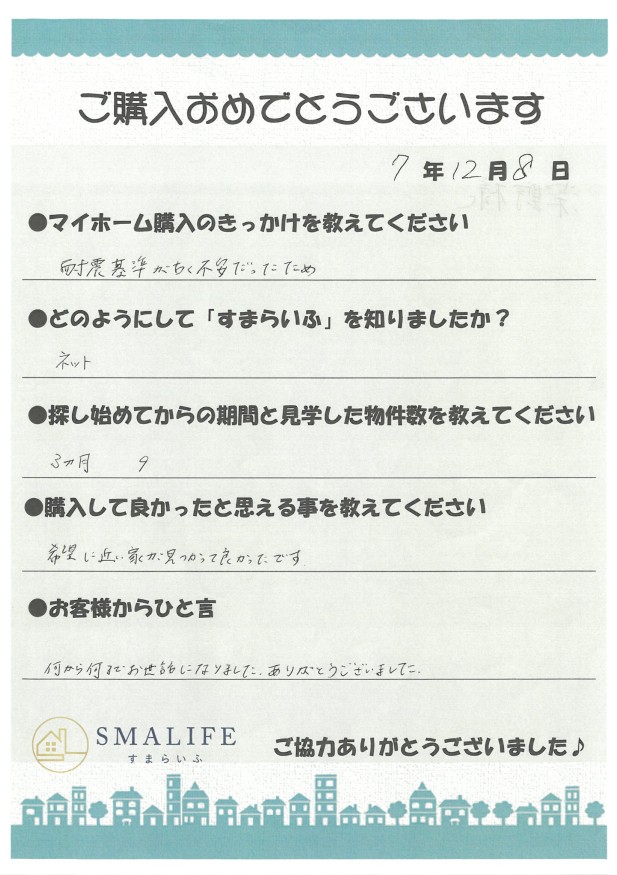 ご購入おめでとうございます
7 年 12 月 8 日
●マイホーム購入のきっかけを教えてください
耐震基準がちく不安だったため
●どのようにして「すまらいふ」を知りましたか？
ネット
●探し始めてからの期間と見学した物件数を教えてください
3ヵ月 9
●購入して良かったと思える事を教えてください
希望に近い家が見つかって良かったです
●お客様からひと言
何から何までお世話になりました。ありがとうございました。
SMALIFE
すまらいふ
ご協力ありがとうございました♪